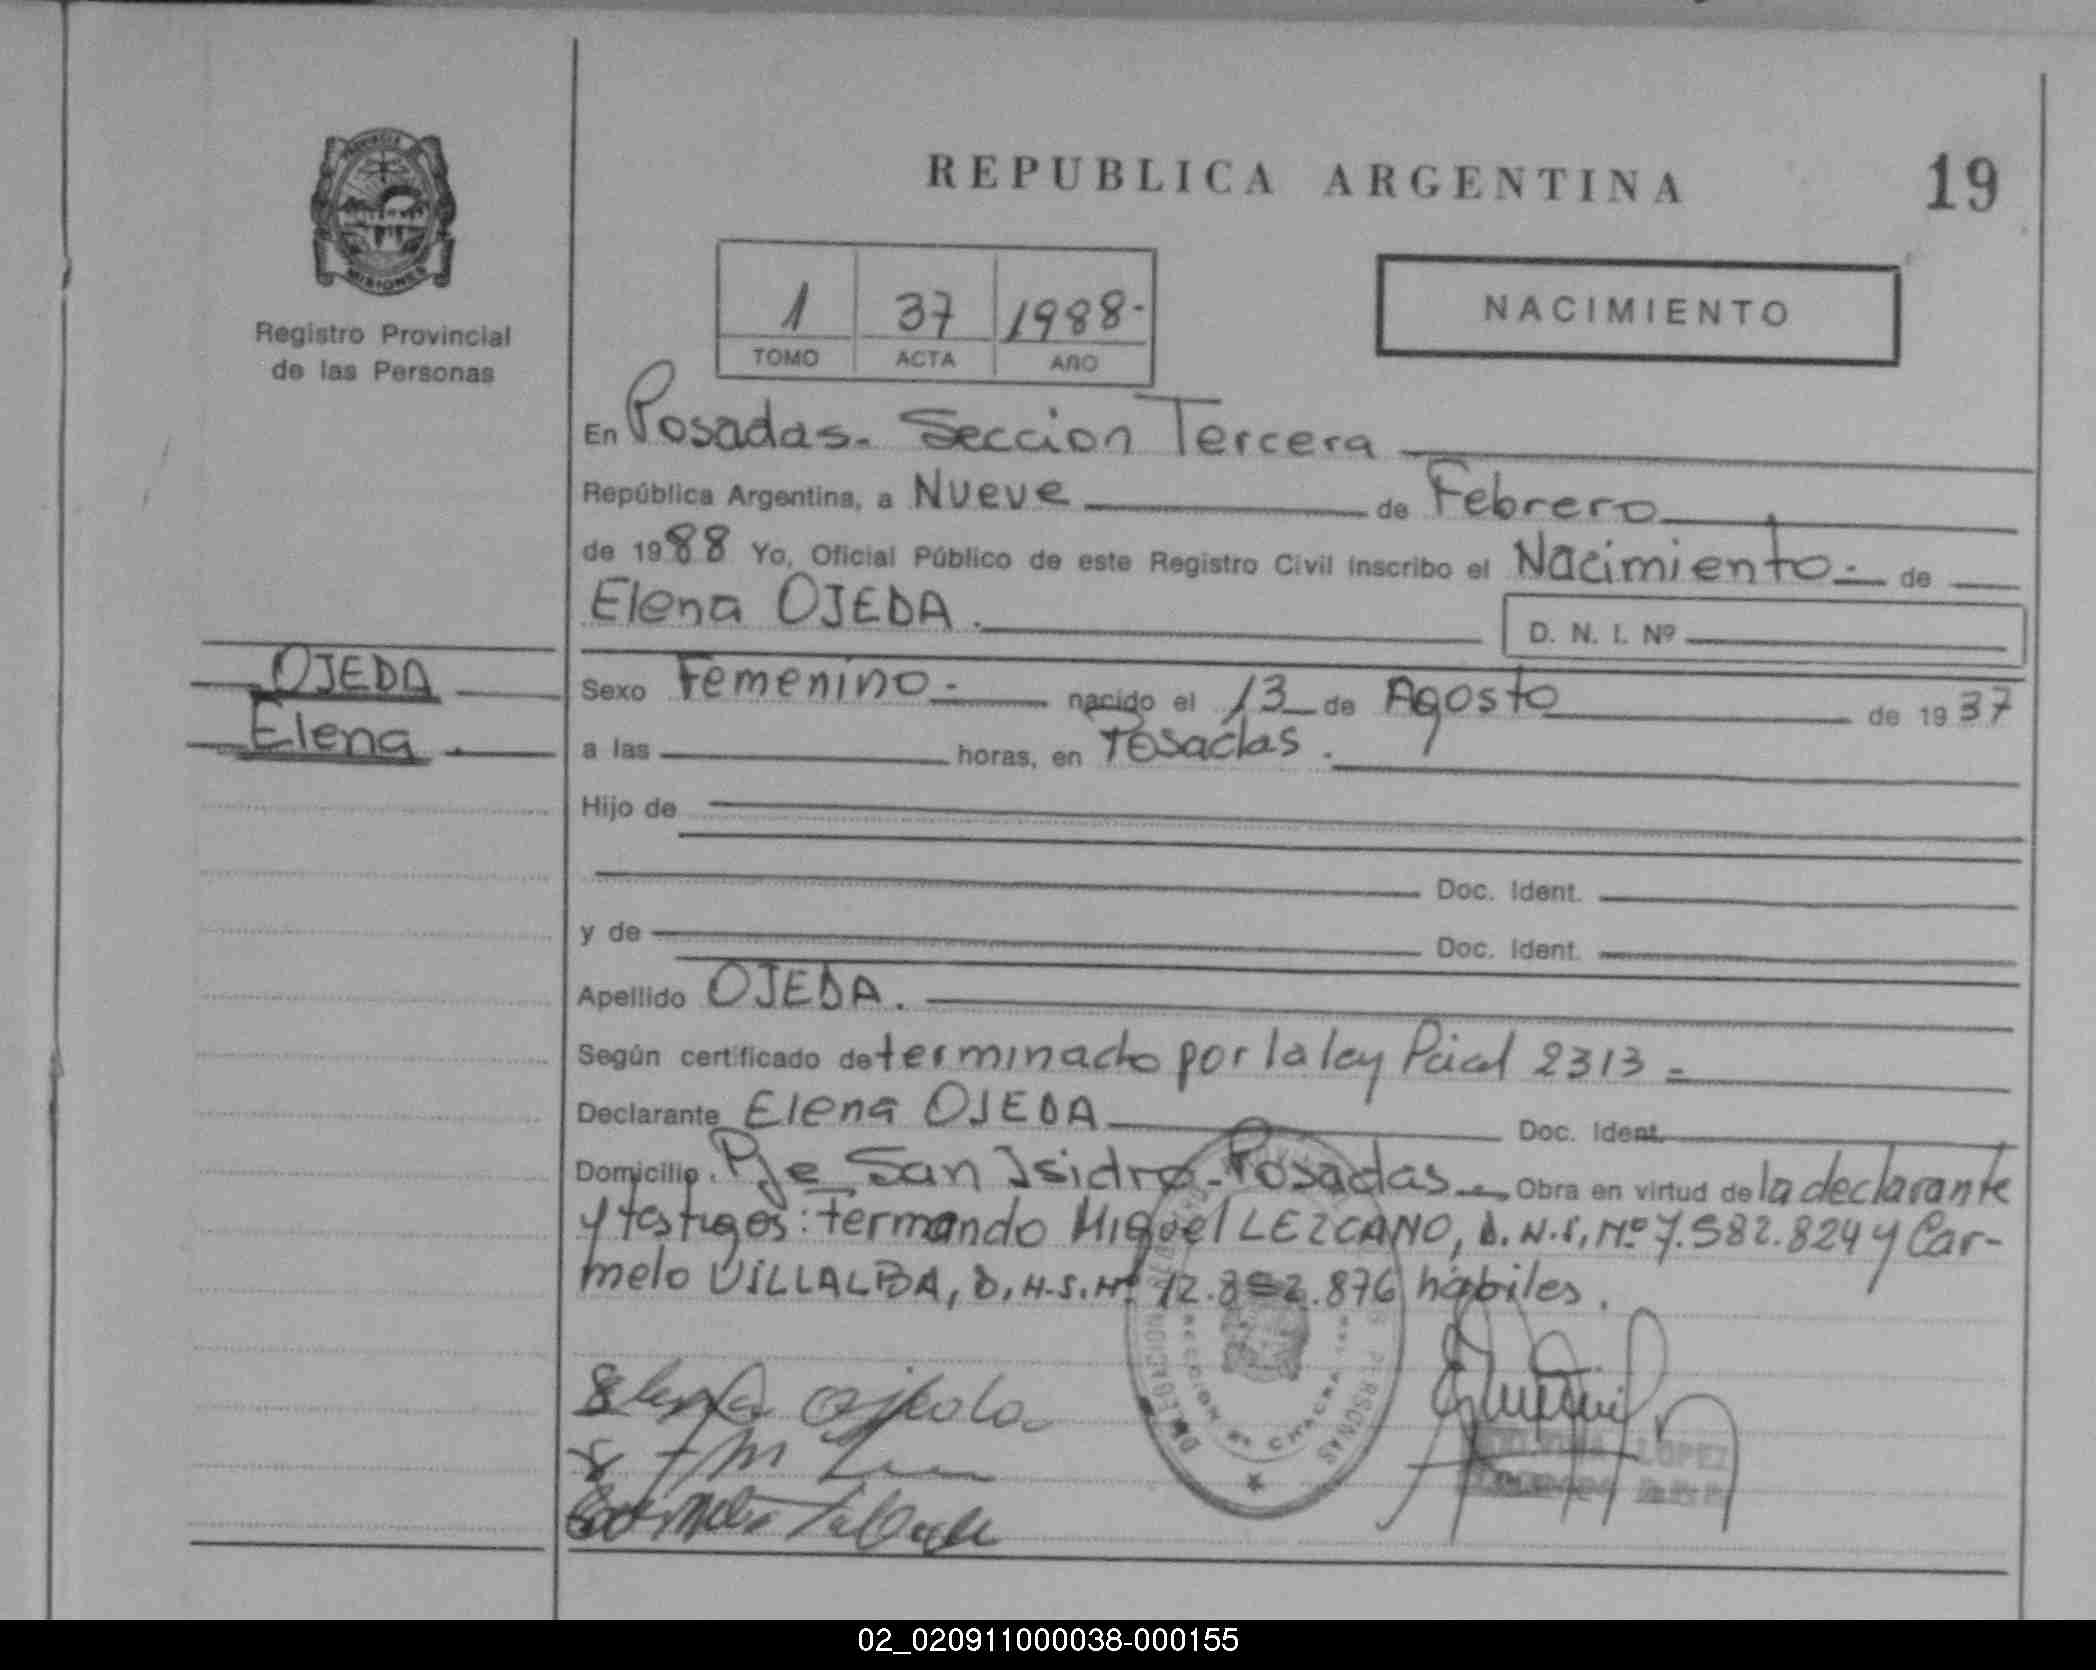 REPUBLICA ARGENTINA
19
MISIONES
Registro Provincial
de las Personas
1 37 1988-
TOMO ACTA AÑO
NACIMIENTO
En Posadas. Seccion Tercera
República Argentina, a Nueve de Febrero
de 1988 Yo, Oficial Público de este Registro Civil inscribo el Nacimiento.- de
Elena OJEDA.
D. N. I. Nº
OJEDA
Elena
Sexo Femenino.- nacido el 13 de Agosto de 1937
a las horas, en Posadas.
Hijo de
Doc. Ident.
y de Doc. Ident.
Apellido OJEDA.
Según certificado determinado por la ley Pcial 2313 =
Declarante Elena OJEDA Doc. Ident.
Domicilio. Pje San Isidro-Posadas Obra en virtud de la declarante
y testigos: Fermando Miguel LEZCANO, D.N.I. Nº 7.582.824 y Car-
melo VILLALBA, D.N.I. Nº 12.876 hábiles.
Elena Ojeda
LOPEZ
DELEGACION
PERSONAS
SECCION
CHACRA
02_020911000038-000155